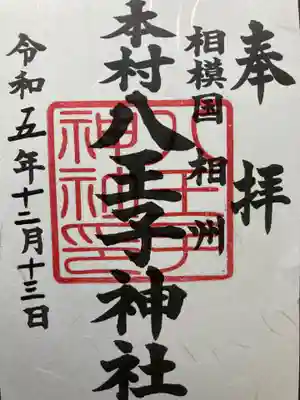 奉拝
相模国 相州
本村八王子神社
令和五年十二月十三日